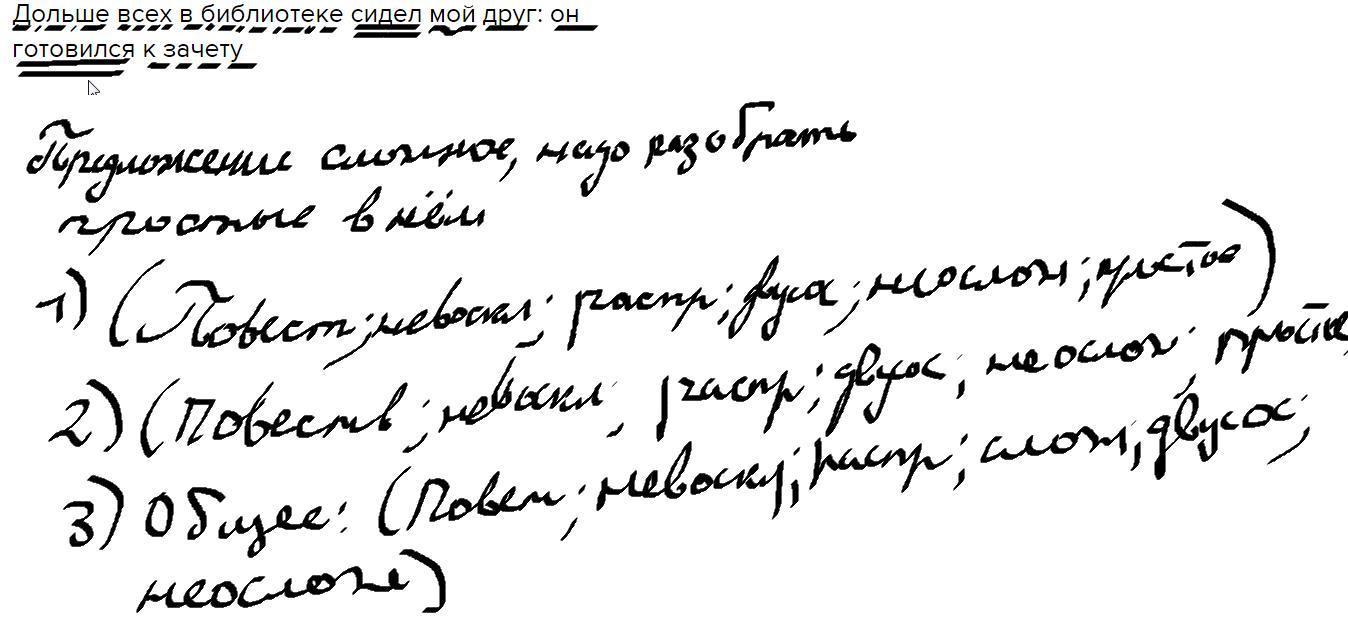 Дольше всех в библиотеке сидел мой друг: он
готовился к зачету
Предложение сложное, надо разобрать
простые в нём
1) (Повест; невоскл; распр; двусо; неослож; простое)
2) (Повеств; невоскл; распр; двусос; неослож; простое
3) Общее: (Повест; невоскл; распр; слож; двусос;
неослож)